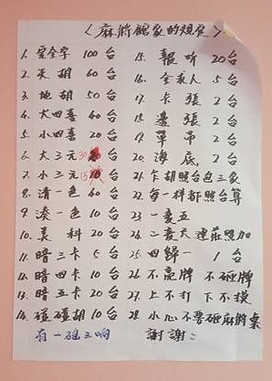 ＜麻將觀象的規定＞
1. 全字 100台
2. 天胡 60台
3. 地胡 50台
4. 大四喜 60台
5. 小四喜 20台
6. 大三元 台
7. 小三元 台
8. 清一色 60台
9. 湊一色 10台
10. 台
11. 暗三卡 5台
12. 暗四卡 10台
13. 暗五卡 20台
14. 碰碰胡 10台
有一砲三响
15. 報听 20台
16. 全求人 5台
17. 卡張 2台
18. 邊張 2台
19. 單吊 2台
20. 海底 2台
21. 乍胡照台包三家
22. 每一样都照台算
23. 一麦五
24. 二麦大 連莊照加
25. 四歸一 1台
26. 不亮牌 不砸牌
27. 上不打 下不摸
28. 小心不要砸麻將桌
謝謝